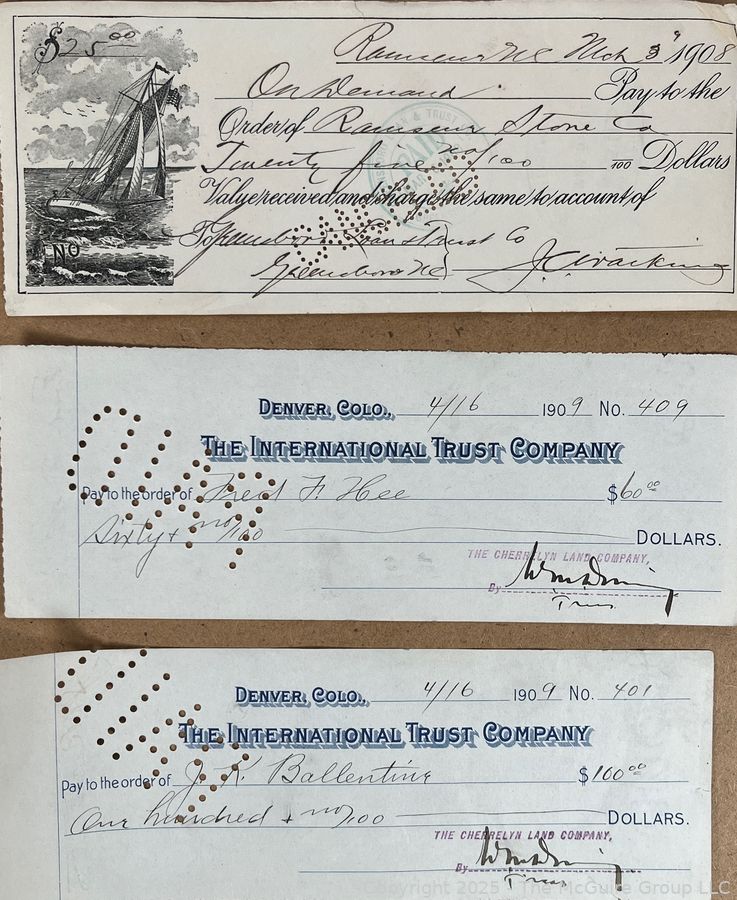 $25.00
Ramseur NC Mch 3" 1908
On Demand Pay to the
Order of Ramseur Stone Co
Twenty five no/100 100 Dollars
Value received and charge the same to account of
To Greensboro Loan & Trust Co
NO
Greensboro NC J C Watkins
& TRUST
PAID
DENVER, COLO., 4/16 1909 No. 409
THE INTERNATIONAL TRUST COMPANY
Pay to the order of Fred F. Hee $60.00
Sixty & no/100 DOLLARS.
THE CHERRELYN LAND COMPANY,
By
Treas
DENVER, COLO., 4/16 1909 No. 401
THE INTERNATIONAL TRUST COMPANY
Pay to the order of J. K. Ballentine $100.00
One hundred & no/100 DOLLARS.
THE CHERRELYN LAND COMPANY,
By
Treas
Copyright 2025 - The McGuire Group LLC